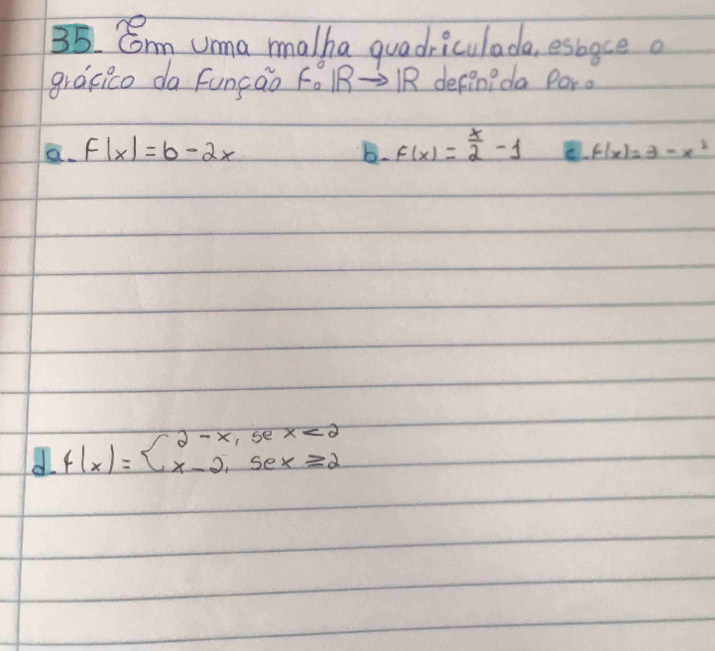 35. Em uma malha quadriculada, esboce o
gráfico da função F: IR → IR definida por:
a. F(x) = 6 - 2x b. F(x) = x/2 - 1 c. f(x) = 3 - x²
d. f(x) = { 2 - x, se x < 2
x - 2, se x ≥ 2